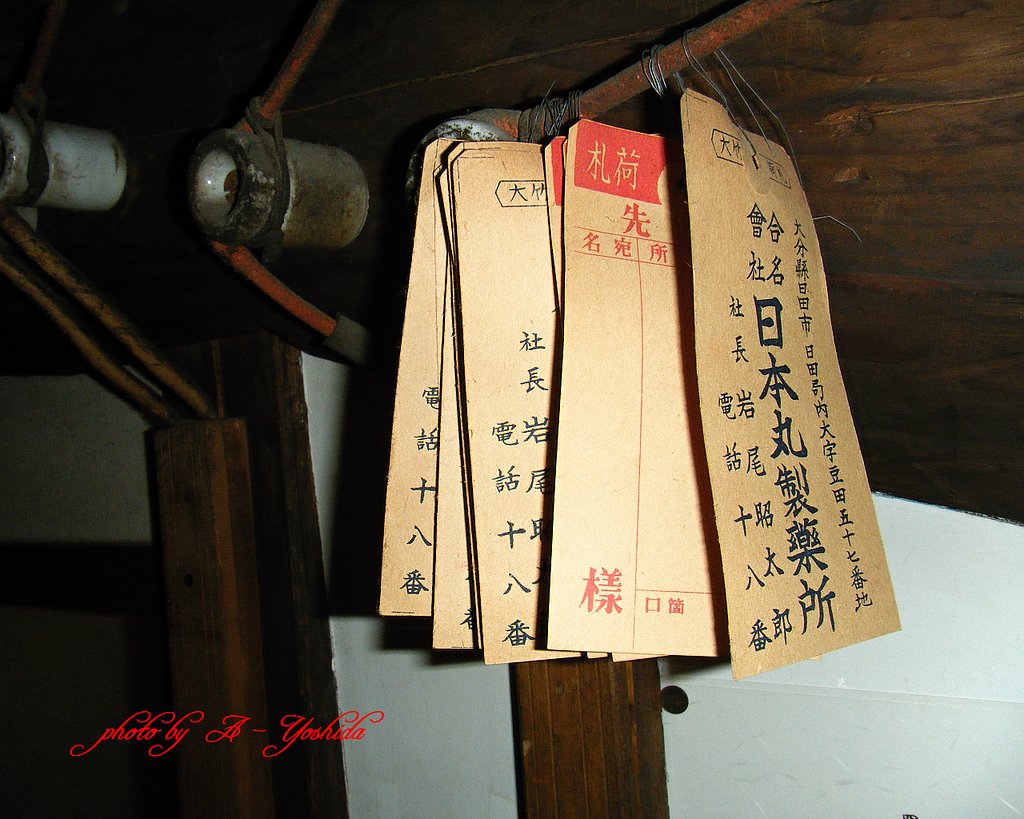 大分縣日田市 日田局内大字豆田五十七番地
合名
會社
日本丸製藥所
社長 岩尾昭太郎
電話 十八番
荷札
先
所
宛名
箇口
様
大竹
社長 岩尾昭
電話 十八番
電話 十八番
photo by A - Yoshida